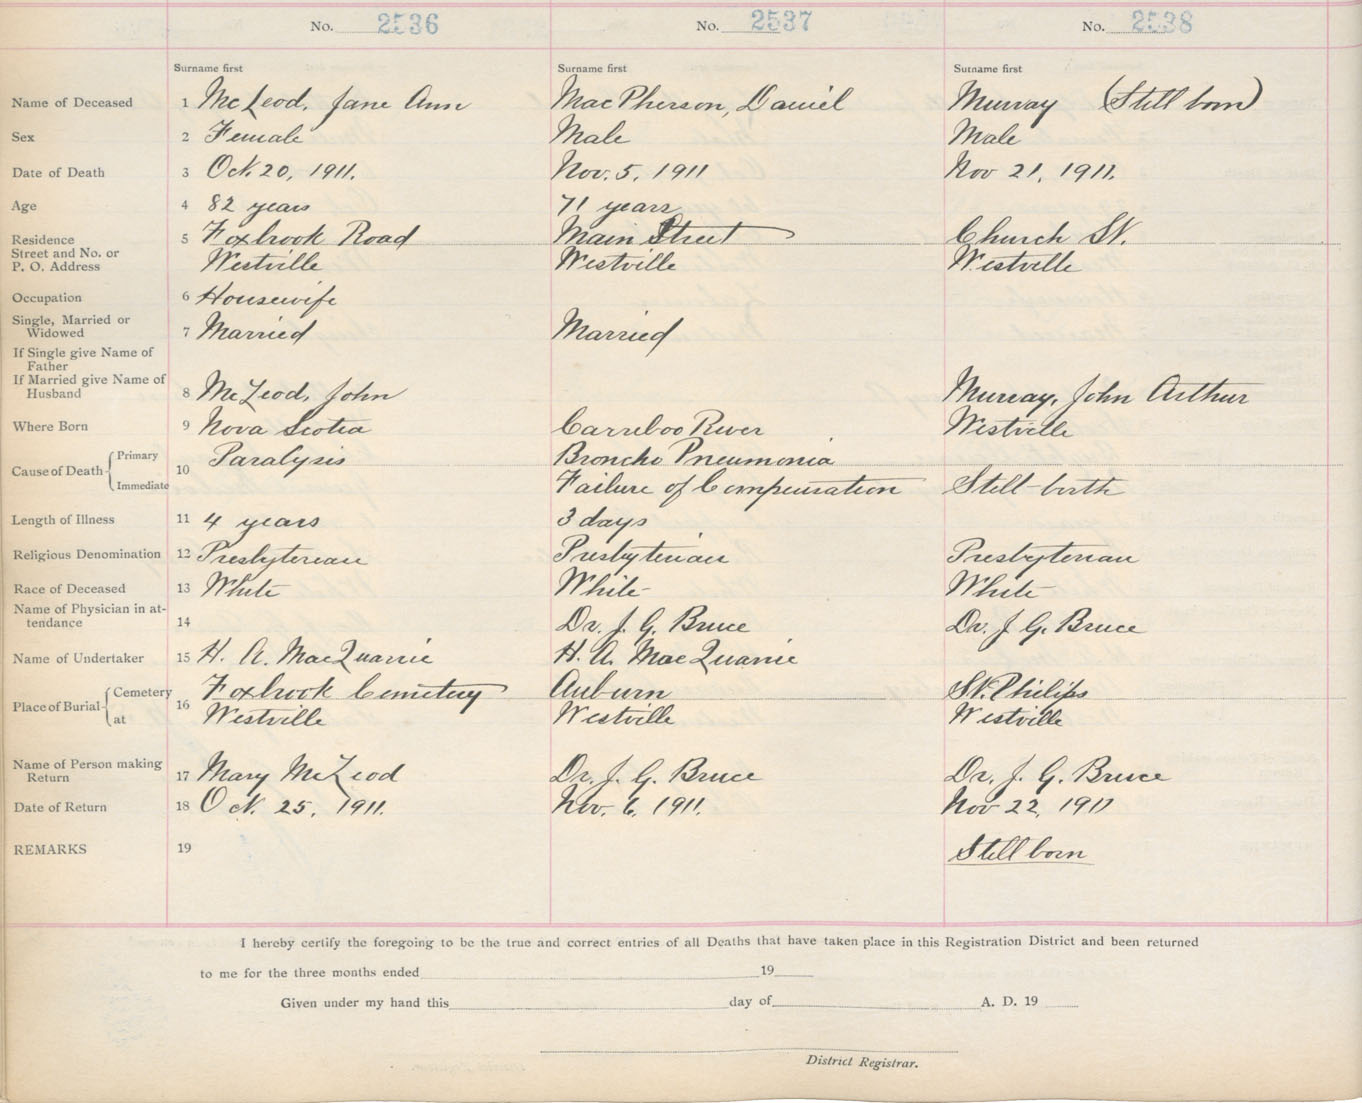 No. 2536 No. 2537 No. 2538
Surname first Surname first Surname first
Name of Deceased 1 McLeod, Jane Ann MacPherson, Daniel Murray (Still born)
Sex 2 Female Male Male
Date of Death 3 Oct. 20, 1911. Nov. 5, 1911 Nov 21, 1911.
Age 4 82 years 71 years
Residence 5 Foxbrook Road Main Street Church St.
Street and No. or
P. O. Address Westville Westville Westville
Occupation 6 Housewife
Single, Married or
Widowed 7 Married Married
If Single give Name of
Father
If Married give Name of
Husband 8 McLeod, John Murray, John Arthur
Where Born 9 Nova Scotia Carreboo River Westville
Cause of Death Primary 10 Paralysis Broncho Pneumonia
Immediate Failure of Compensation Still-birth
Length of Illness 11 4 years 3 days
Religious Denomination 12 Presbyterean Presbyterian Presbyterian
Race of Deceased 13 White White White
Name of Physician in at-
tendance 14 Dr. J. G. Bruce Dr. J. G. Bruce
Name of Undertaker 15 H. A. MacQuarrie H. A. MacQuarrie
Place of Burial Cemetery 16 Foxbrook Cemetery Auburn St. Philips
at Westville Westville Westville
Name of Person making
Return 17 Mary McLeod Dr. J. G. Bruce Dr. J. G. Bruce
Date of Return 18 Oct. 25, 1911. Nov. 6, 1911. Nov 22, 1911
REMARKS 19 Still born
I hereby certify the foregoing to be the true and correct entries of all Deaths that have taken place in this Registration District and been returned
to me for the three months ended 19
Given under my hand this day of A. D. 19
District Registrar.